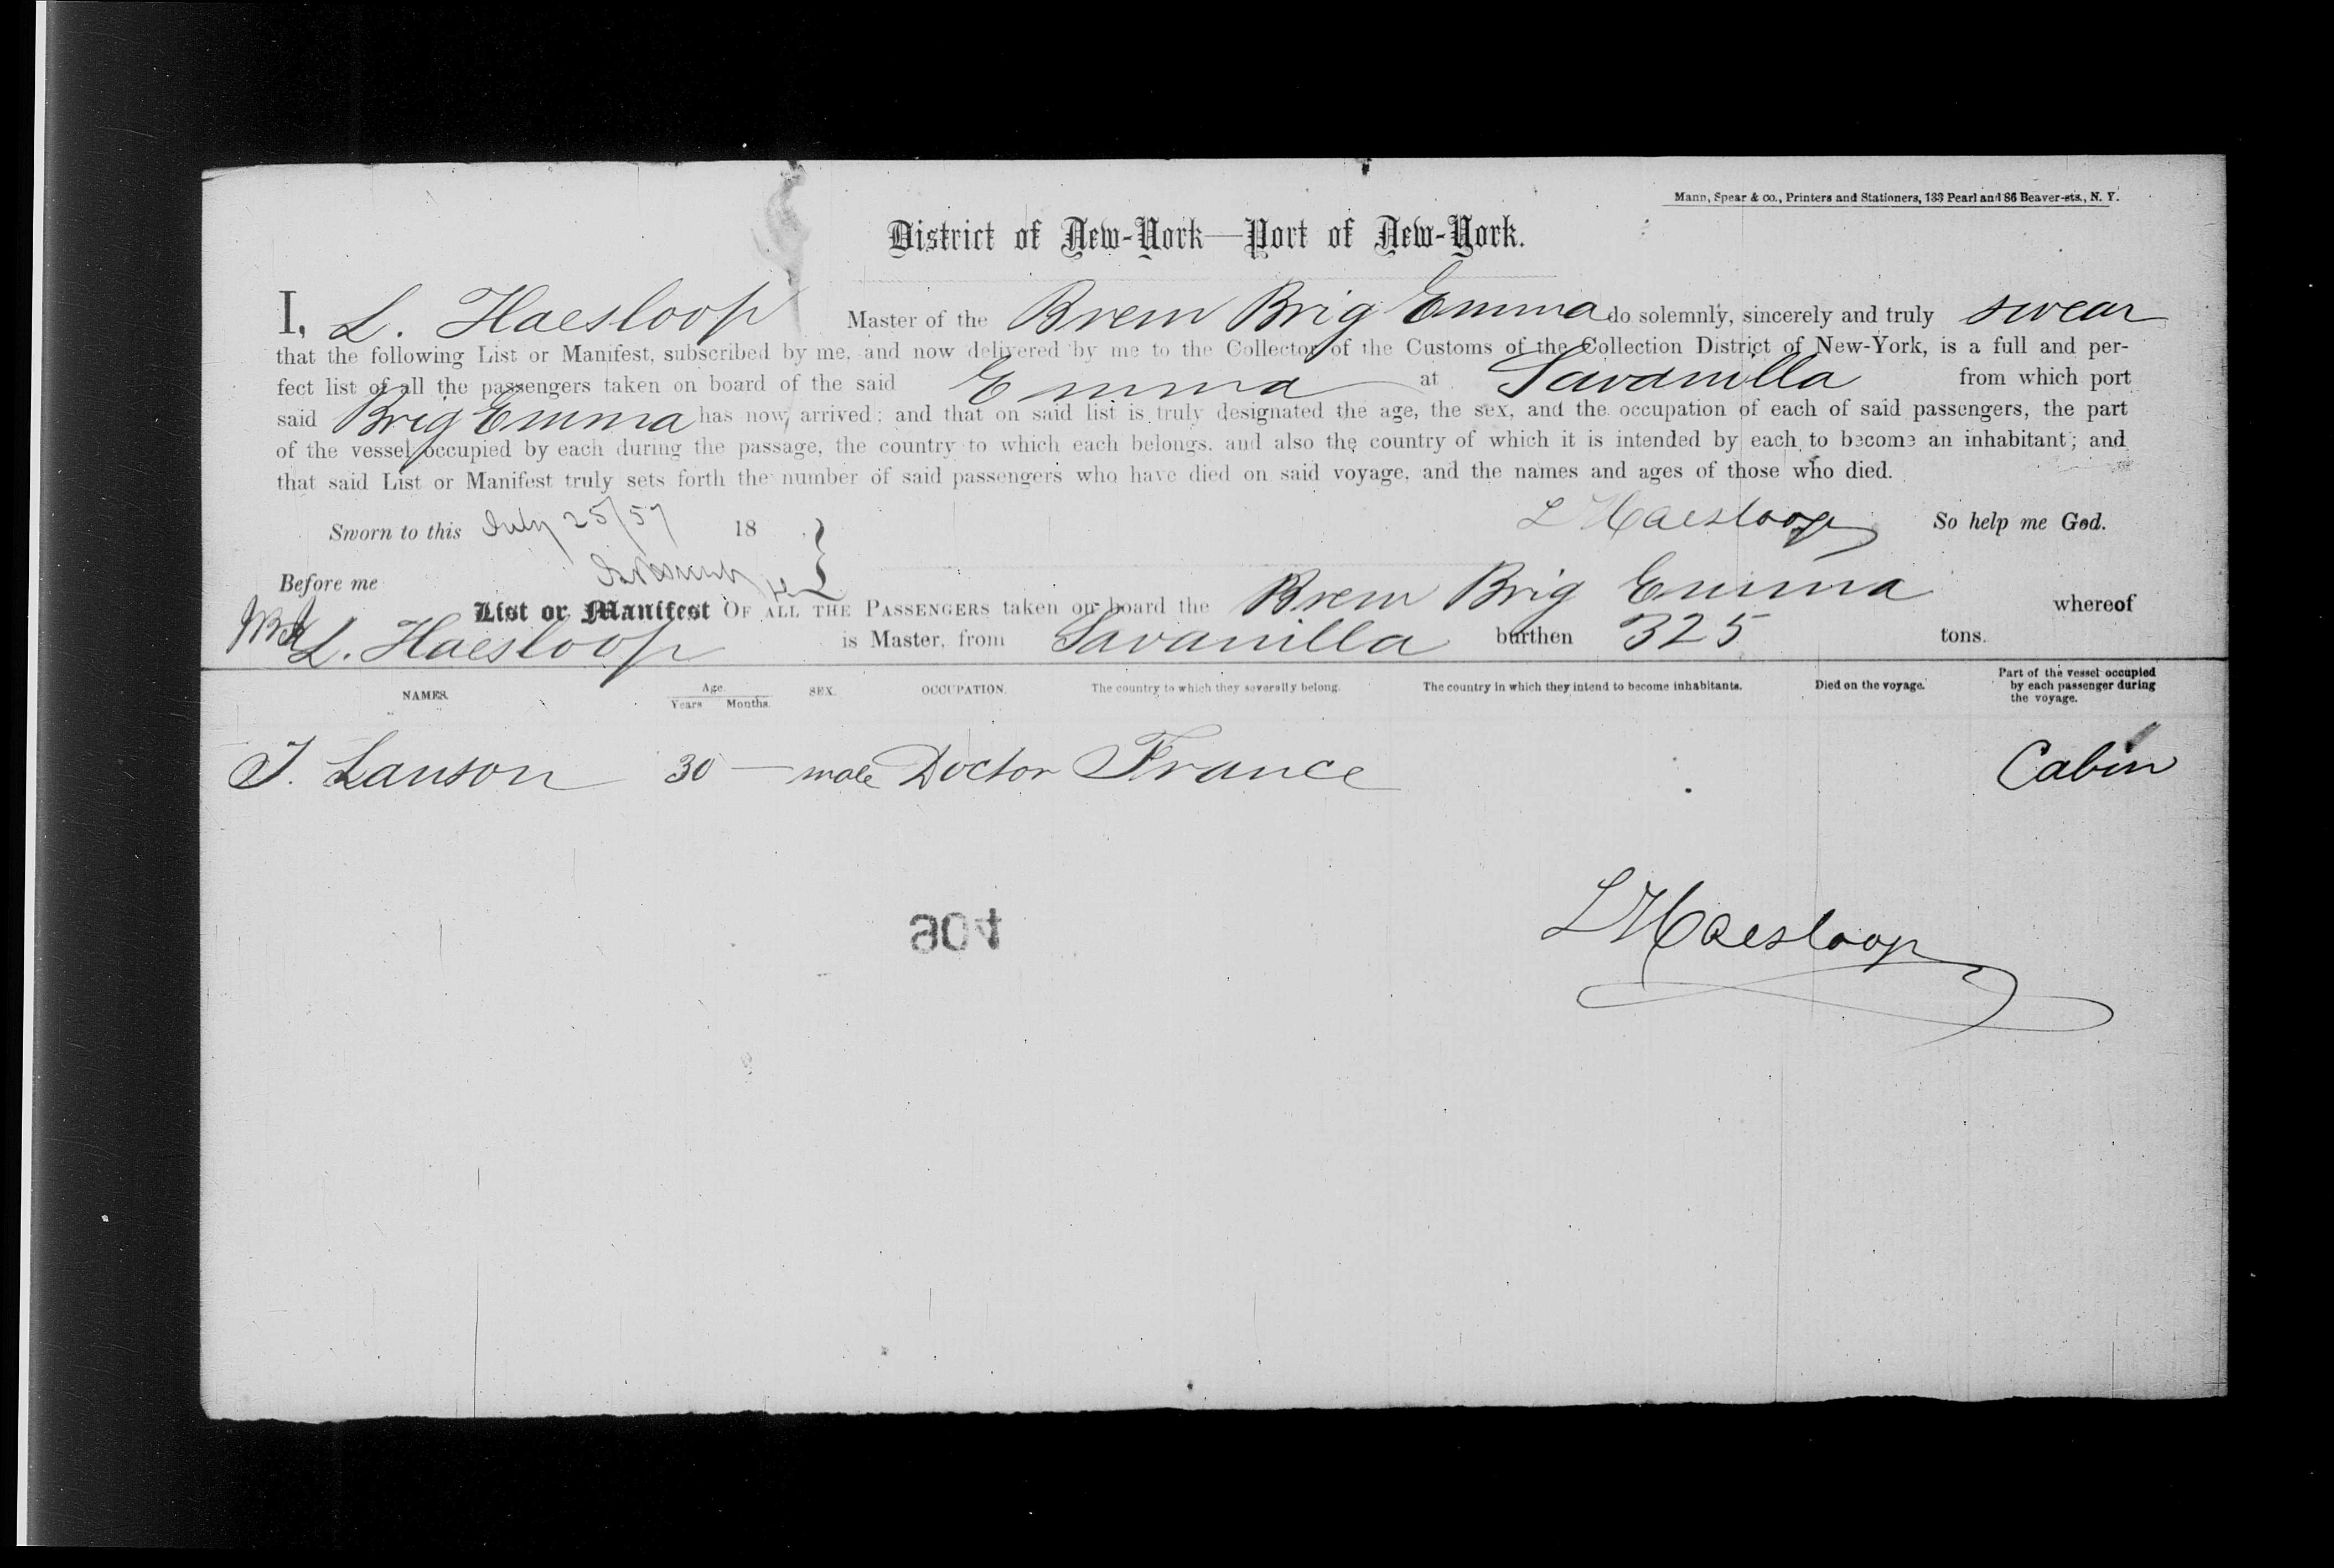 Mann, Spear & co., Printers and Stationers, 133 Pearl and 86 Beaver-sts., N. Y.
District of New-York—Port of New-York.
I, L. Haesloop Master of the Brem Brig Emma do solemnly, sincerely and truly swear
that the following List or Manifest, subscribed by me, and now delivered by me to the Collector of the Customs of the Collection District of New-York, is a full and per-
fect list of all the passengers taken on board of the said Emma at Savanilla from which port
said Brig Emma has now arrived; and that on said list is truly designated the age, the sex, and the occupation of each of said passengers, the part
of the vessel occupied by each during the passage, the country to which each belongs, and also the country of which it is intended by each to become an inhabitant; and
that said List or Manifest truly sets forth the number of said passengers who have died on said voyage, and the names and ages of those who died.
Sworn to this July 25/57 18 L Haesloop So help me God.
Before me
List or Manifest OF ALL THE PASSENGERS taken on board the Brem Brig Emma whereof
L. Haesloop is Master, from Savanilla burthen 325 tons.
NAMES. Age. Years Months. SEX. OCCUPATION. The country to which they severally belong. The country in which they intend to become inhabitants. Died on the voyage. Part of the vessel occupied by each passenger during the voyage.
J. Lanson 30 — male Doctor France Cabin
904
L Haesloop